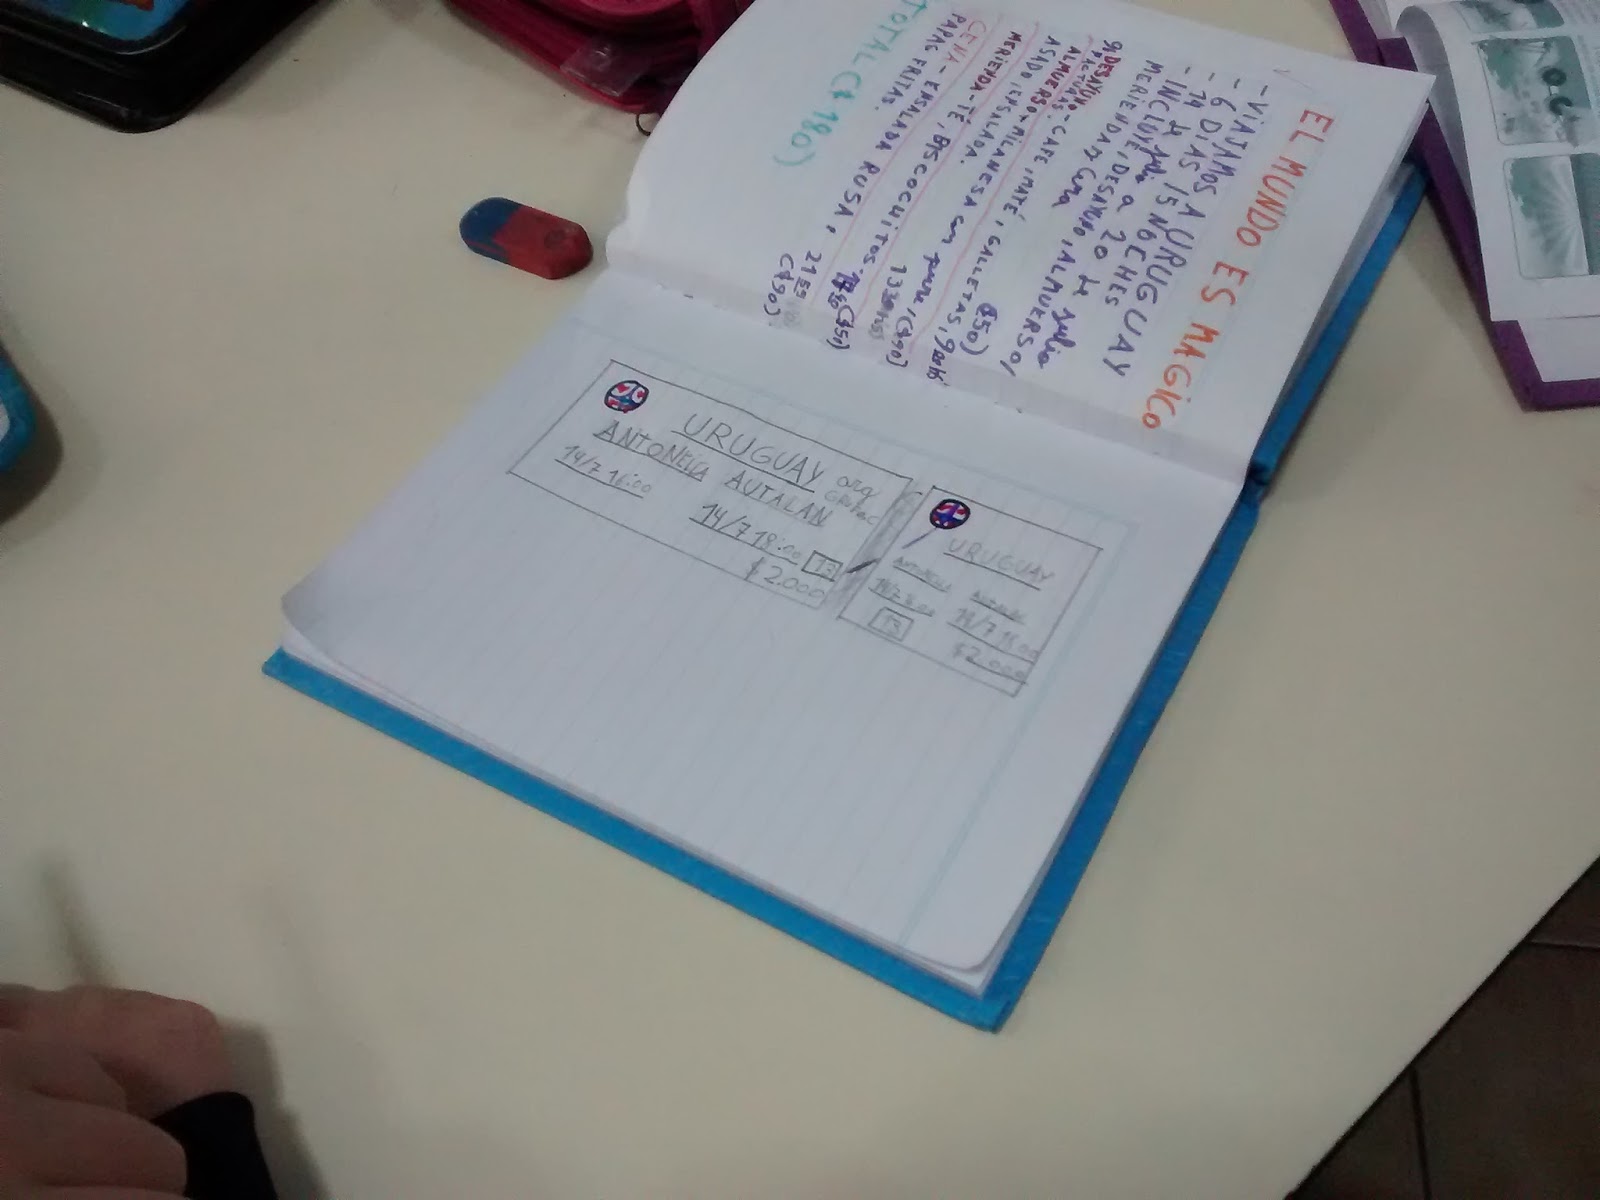 EL MUNDO ES MAGICO
- VIAJAMOS A URUGUAY
- 6 DIAS 15 NOCHES
- 14 de julio a 20 de julio
- INCLUYE, DESAYUNO, ALMUERSO,
MERIENDA y Cena
DESAYUNO - CAFE, MATE, GALLETAS,
FACTURAS. ($50)
ALMUERSO - MILANESA con pure,
ASADO, ENSALADA. ($90)
MERIENDA - TÉ, BISCOCHITOS. ($50)
CENA - ENSALADA RUSA,
PAPAS FRITAS. ($90)
TOTAL ($180)
URUGUAY
ANTONELLA AUTALAN
14/7 16:00
14/7 18:00
13
$2.000
URUGUAY
14/7
13
14/7 18:00
$2.000